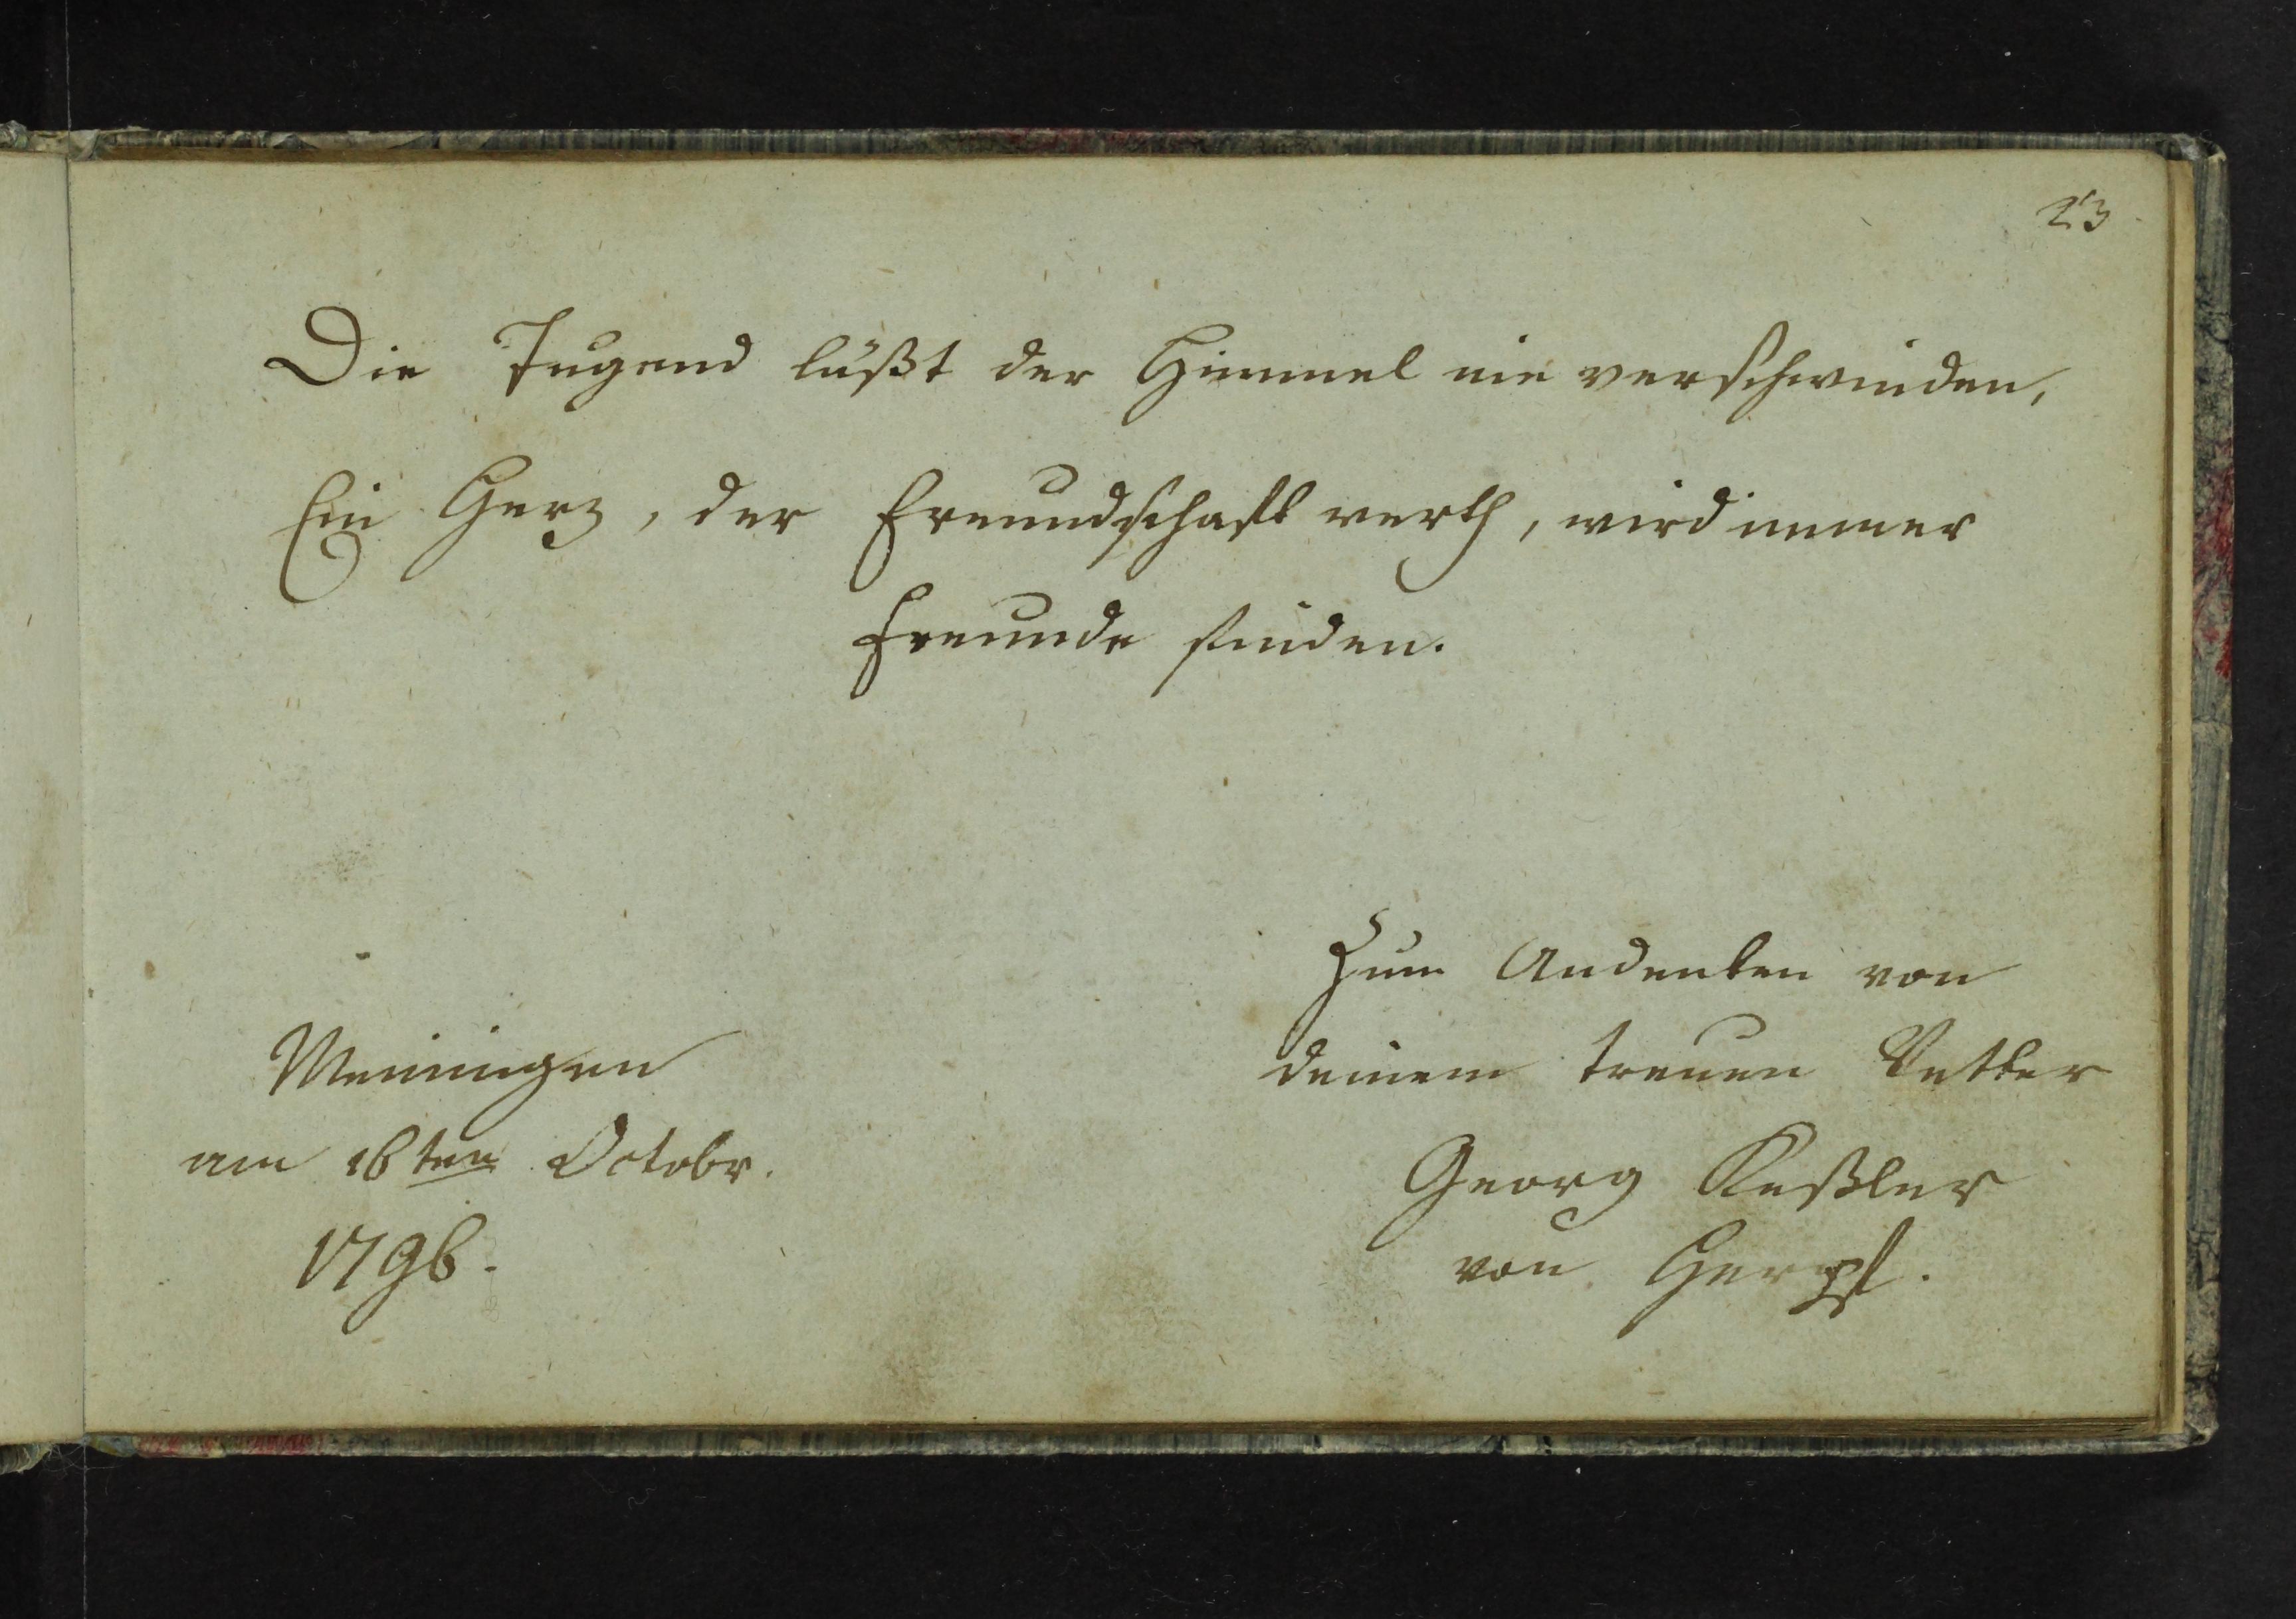 23
Die Tugend läßt der Himmel nie verschwinden,
Ein Herz, der Freundschaft werth, wird immer
Freunde finden.
Zum Andenken von
deinem treuen Vetter
Georg Keßler
von Herpf.
Meiningen
am 16ten Octobr.
1796.